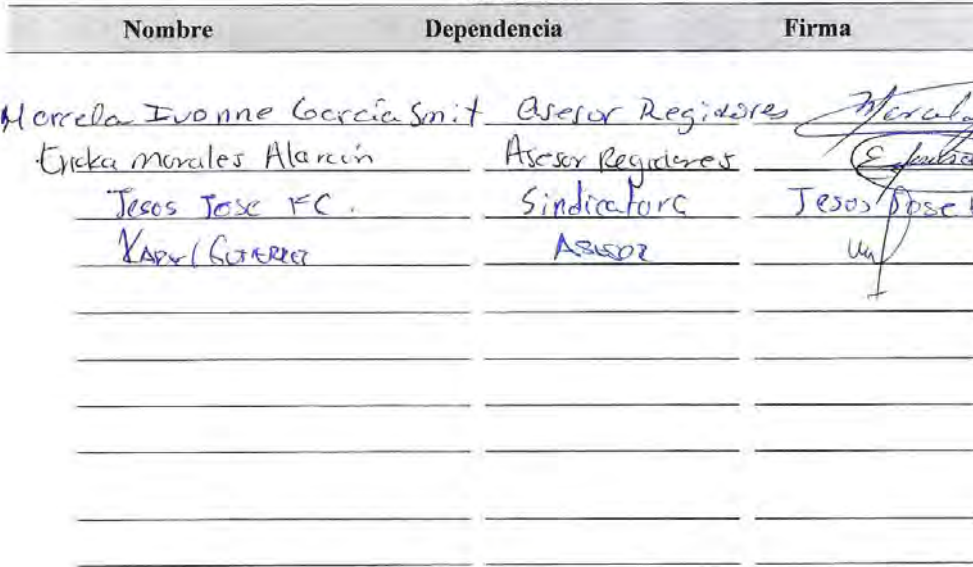 Nombre Dependencia Firma
Marcela Ivonne García Smit Asesor Regidores Marcela
Ericka Morales Alarcón Asesor Regidores
Jesos Jose FC. Sindicatura Jesos Jose
Gutierrez Asesor